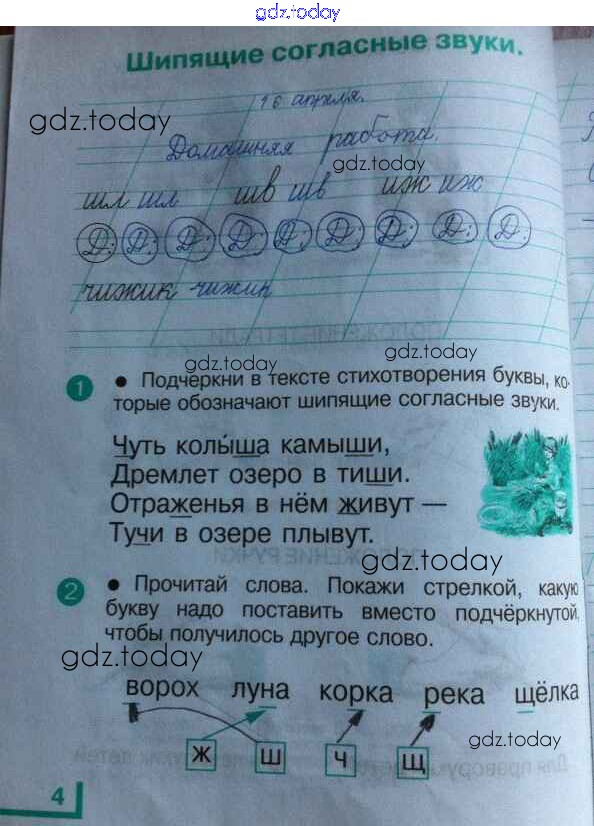 gdz.today
Шипящие согласные звуки.
16 апреля.
gdz.today
Домашняя работа.
gdz.today
шл шл шв шв иж иж
Д: Д: Д: Д: Д: Д: Д: Д: Д:
чижик чижик
gdz.today gdz.today
1 • Подчеркни в тексте стихотворения буквы, ко-
торые обозначают шипящие согласные звуки.
Чуть колы́ша камыши,
Дремлет озеро в тиши.
Отраженья в нём живут —
Тучи в озере плывут.
gdz.today
2 • Прочитай слова. Покажи стрелкой, какую
букву надо поставить вместо подчёркнутой,
чтобы получилось другое слово.
gdz.today
ворох луна корка река щёлка
Ж Ш Ч Щ
gdz.today
4